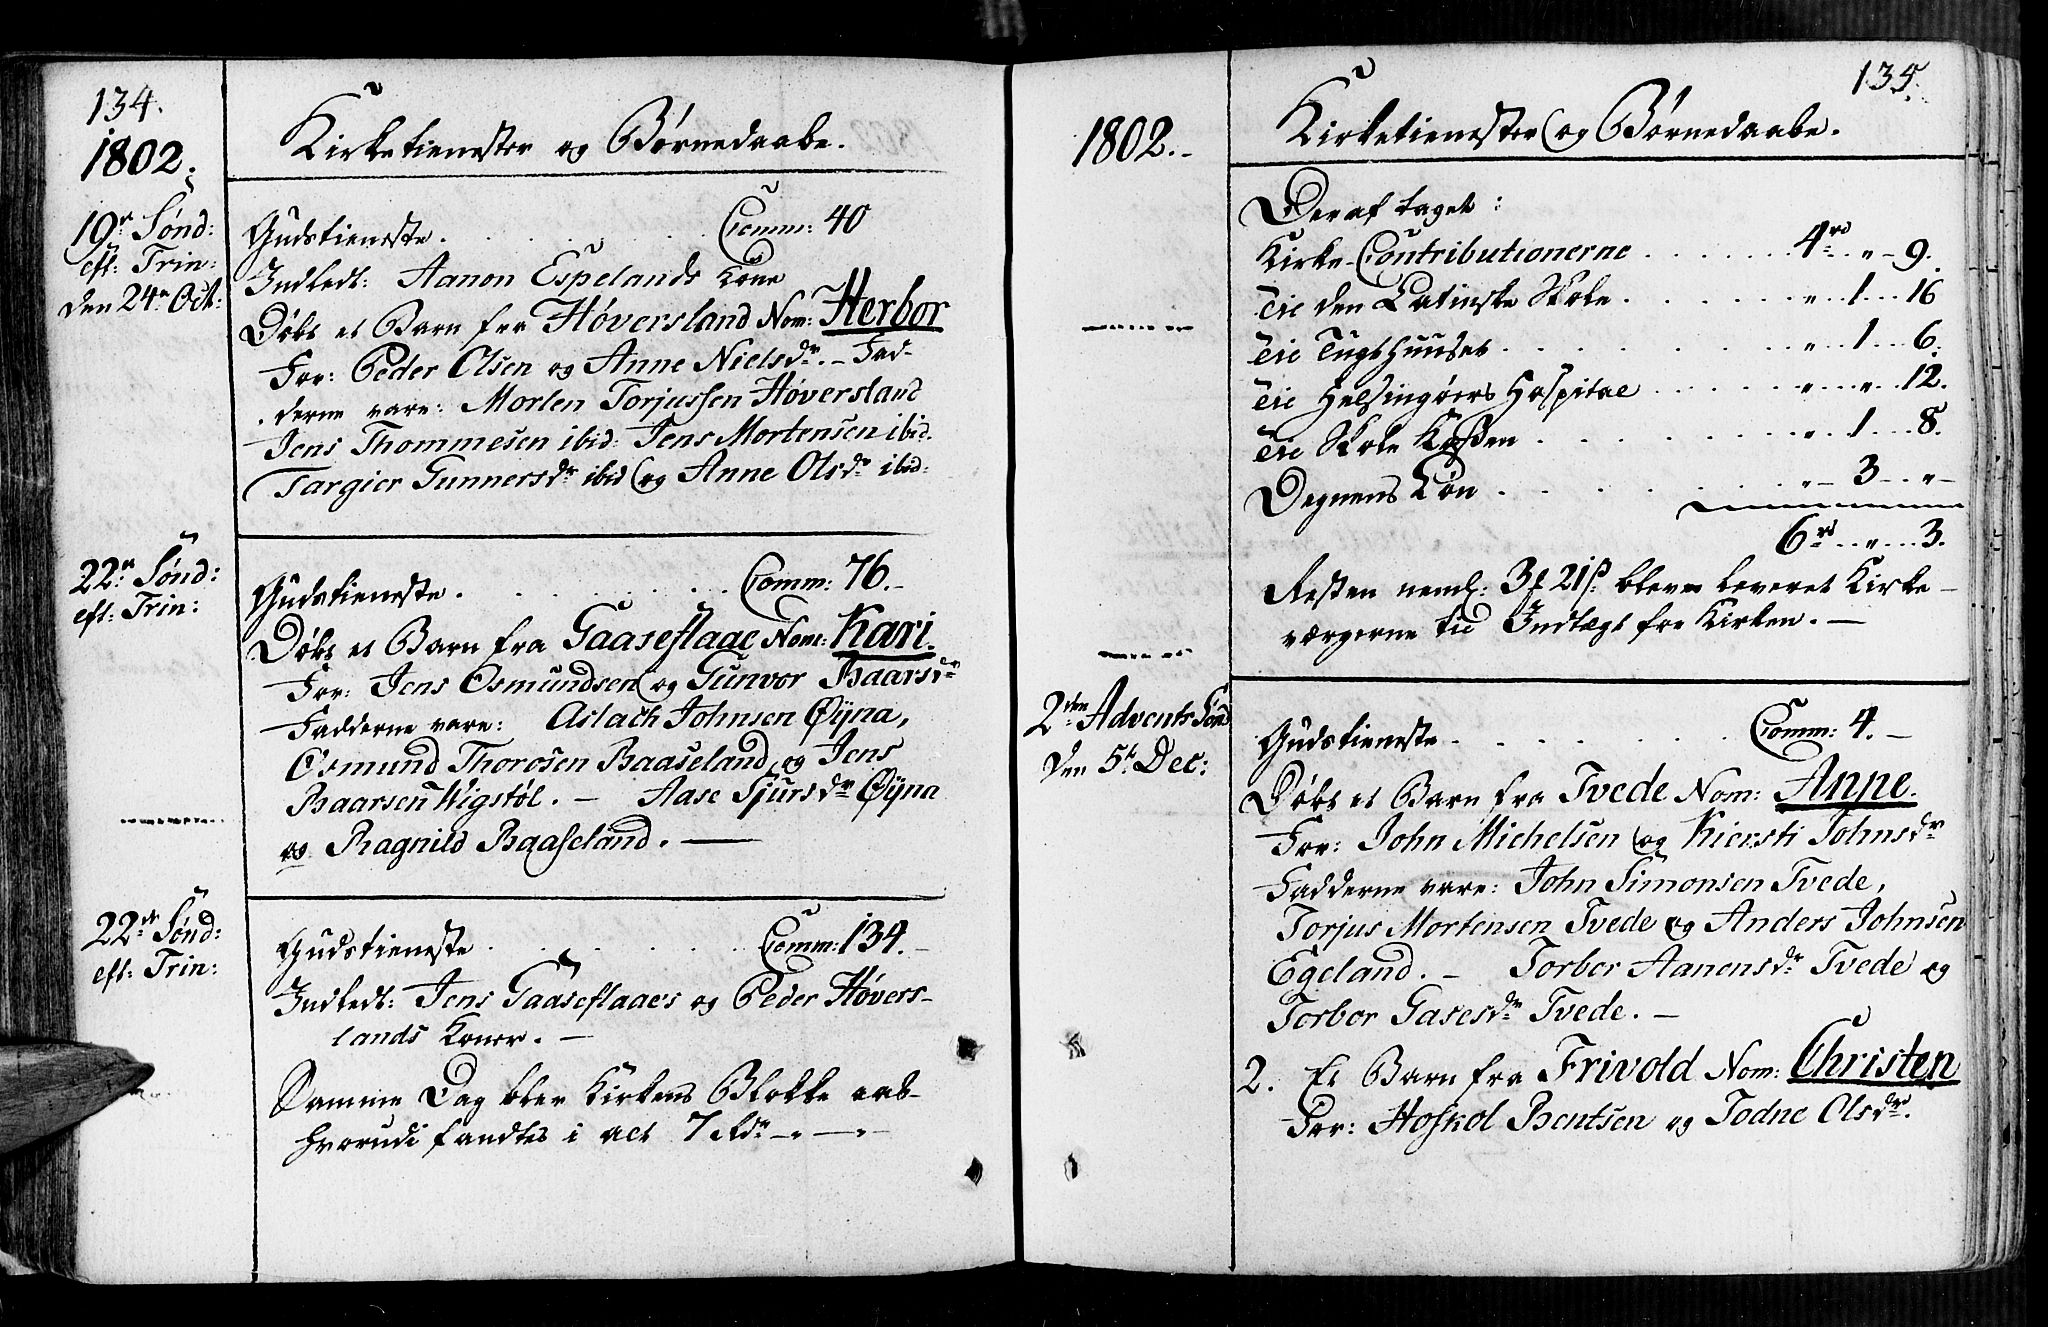 134.
1802.
Kirketienester og Børnedaabe.
19de Sønd:
eft: Trin:
den 24de Oct:
Gudstieneste. . . . . . . Comm: 40
Indledt: Aanon Espelands Kone
Døbt et Barn fra Høversland Nom: Herbor
For: Peder Olsen og Anne Nielsdr. - Fad-
derne vare: Morten Torjussen Høversland
Jens Thommesen ibid: Jens Mortensen ibid.
Targier Gunnersdr ibid og Anne Olsdr ibid:
22de Sønd:
eft: Trin:
Gudstieneste. . . . . . . Comm: 76. -
Døbt et Barn fra Gaaseflaae Nom: Kari.
For: Jens Osmundsen og Gunvor Baarsdr
Fadderne vare: Aslach Johnsen Øÿna,
Osmund Thorosen Baaseland og Jens
Baarsen Wigstøl. - Aase Sjursdr Øÿna
og Ragnild Baaseland. -
22de Sønd:
eft: Trin:
Gudstieneste . . . . . . . Comm: 134. -
Indledt: Jens Gaaseflaaes og Peder Høvers-
lands Koner. -
Samme Dag blev Kirkens Blokke aab-
hvorudi fandtes i alt 7 Rdr - " - "
135.
1802. -
Kirketienester og Børnedaabe.
Deraf taget:
Kirke-Contributionerne . . . . . . 4rd " - 9.
Til den Latinske Skole . . . . . . " . . 1 . . 16
Til Tugthuuset . . . . . . " . . 1 . . 6.
Til Helsingøers Hospital . . . . . . " . . " . . 12.
Til Skole Kaßen . . . . . . " . . 1 . . 8.
Degnens Løn . . . . . . " - 3 - " -
6rd . . " . . 3.
Resten neml: 3 f 21 ß bleve leveret Kirke-
værgerne til Indtægt for Kirken. -
2den Advents Sønd
den 5te Dec:
Gudstieneste . . . . . . . Comm: 4. -
Døbt et Barn fra Tvede Nom: Anne.
For: John Michelsen og Kiersti Johnsdr
Fadderne vare: John Simonsen Tvede,
Torjus Mortensen Tvede og Anders Johnsen
Egeland. - Torbor Aanensdr Tvede og
Torbor Gasesdr Tvede. -
2. Et Barn fra Frivold Nom: Christen
For: Hoskol Bentsen og Todne Olsdr.